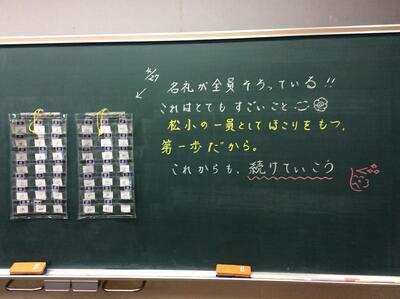 4/27
名札が全員そろっている!!
これはとてもすごいこと
松小の一員としてほこりをもつ、
第一歩だから。
これからも、続けていこう